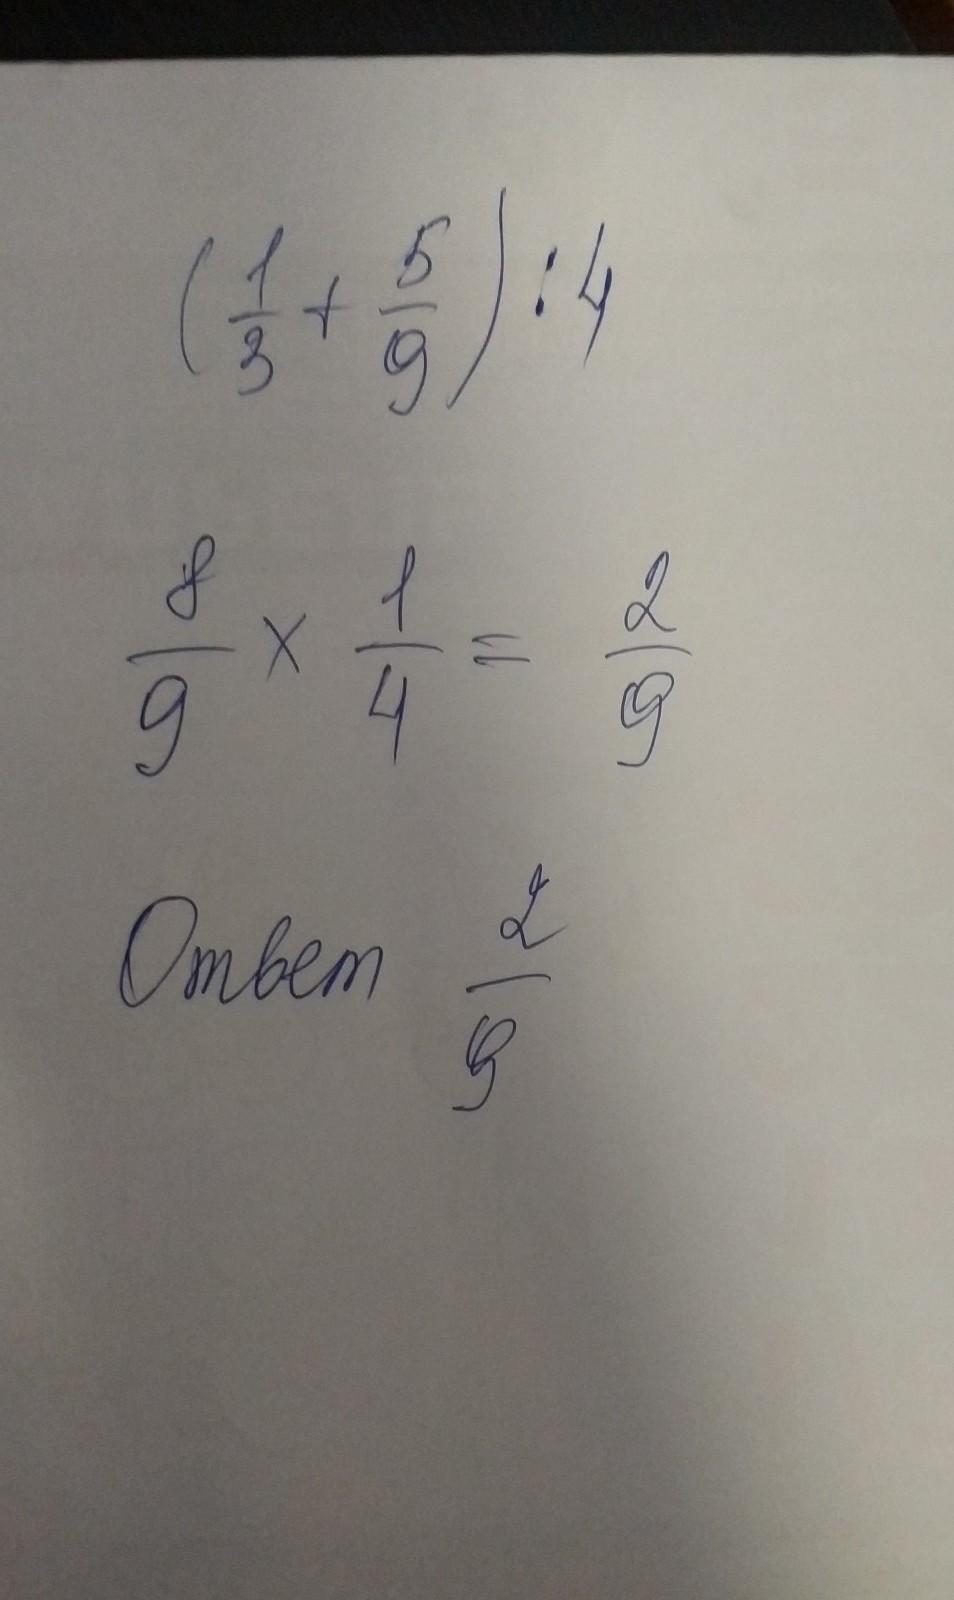 (1/3 + 5/9) : 4
8/9 × 1/4 = 2/9
Ответ 2/9